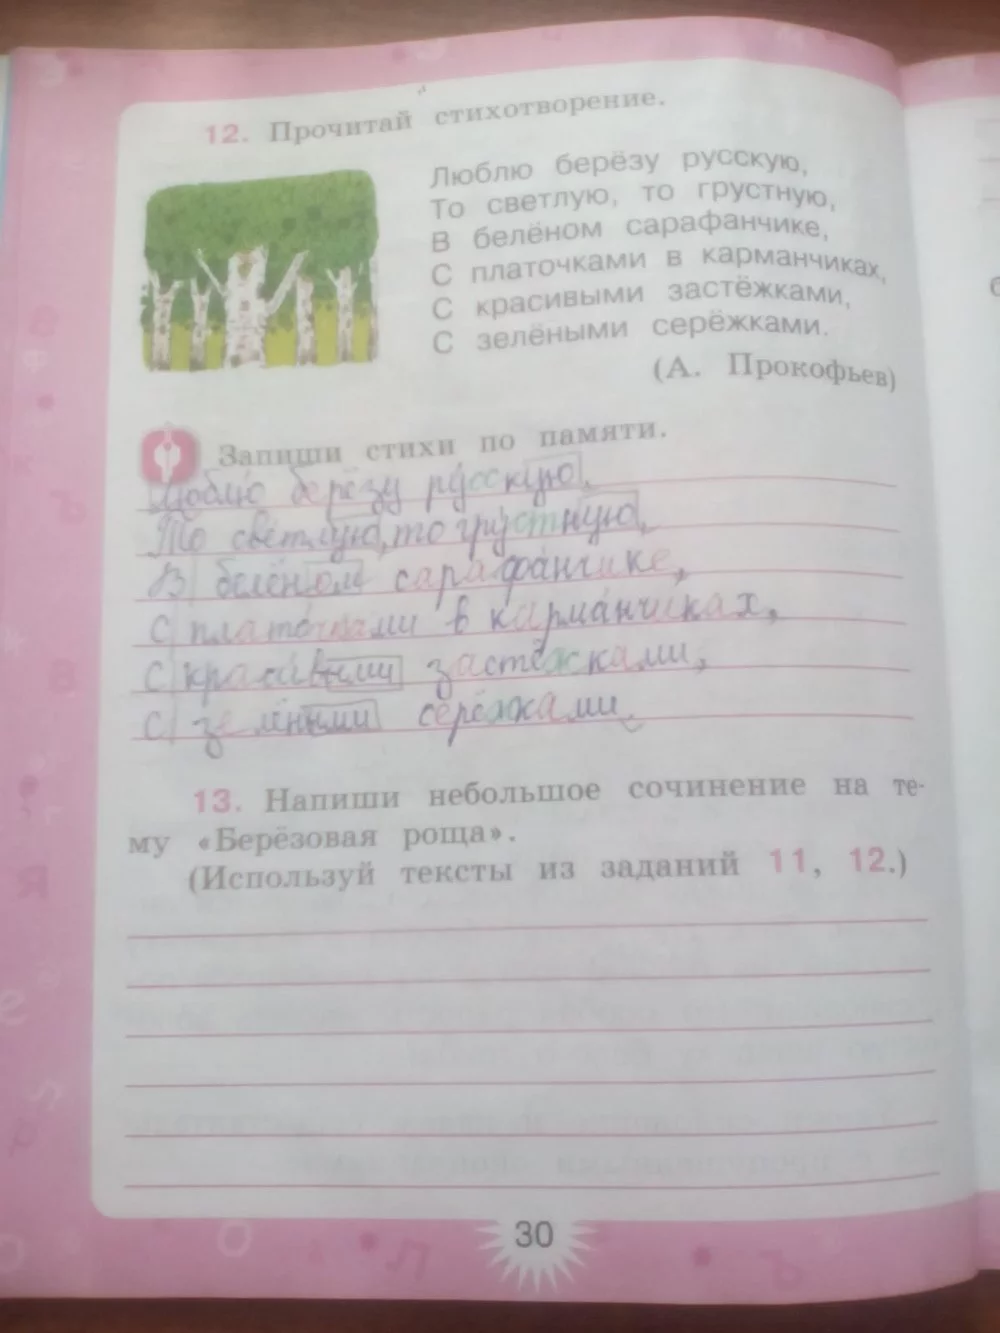 12. Прочитай стихотворение.
Люблю берёзу русскую,
То светлую, то грустную,
В белёном сарафанчике,
С платочками в карманчиках,
С красивыми застёжками,
С зелёными серёжками.
(А. Прокофьев)
Запиши стихи по памяти.
Люблю берёзу русскую,
То светлую, то грустную,
В белёном сарафанчике,
С платочками в карманчиках,
С красивыми застёжками,
С зелёными серёжками.
13. Напиши небольшое сочинение на те-
му «Берёзовая роща».
(Используй тексты из заданий 11, 12.)
30